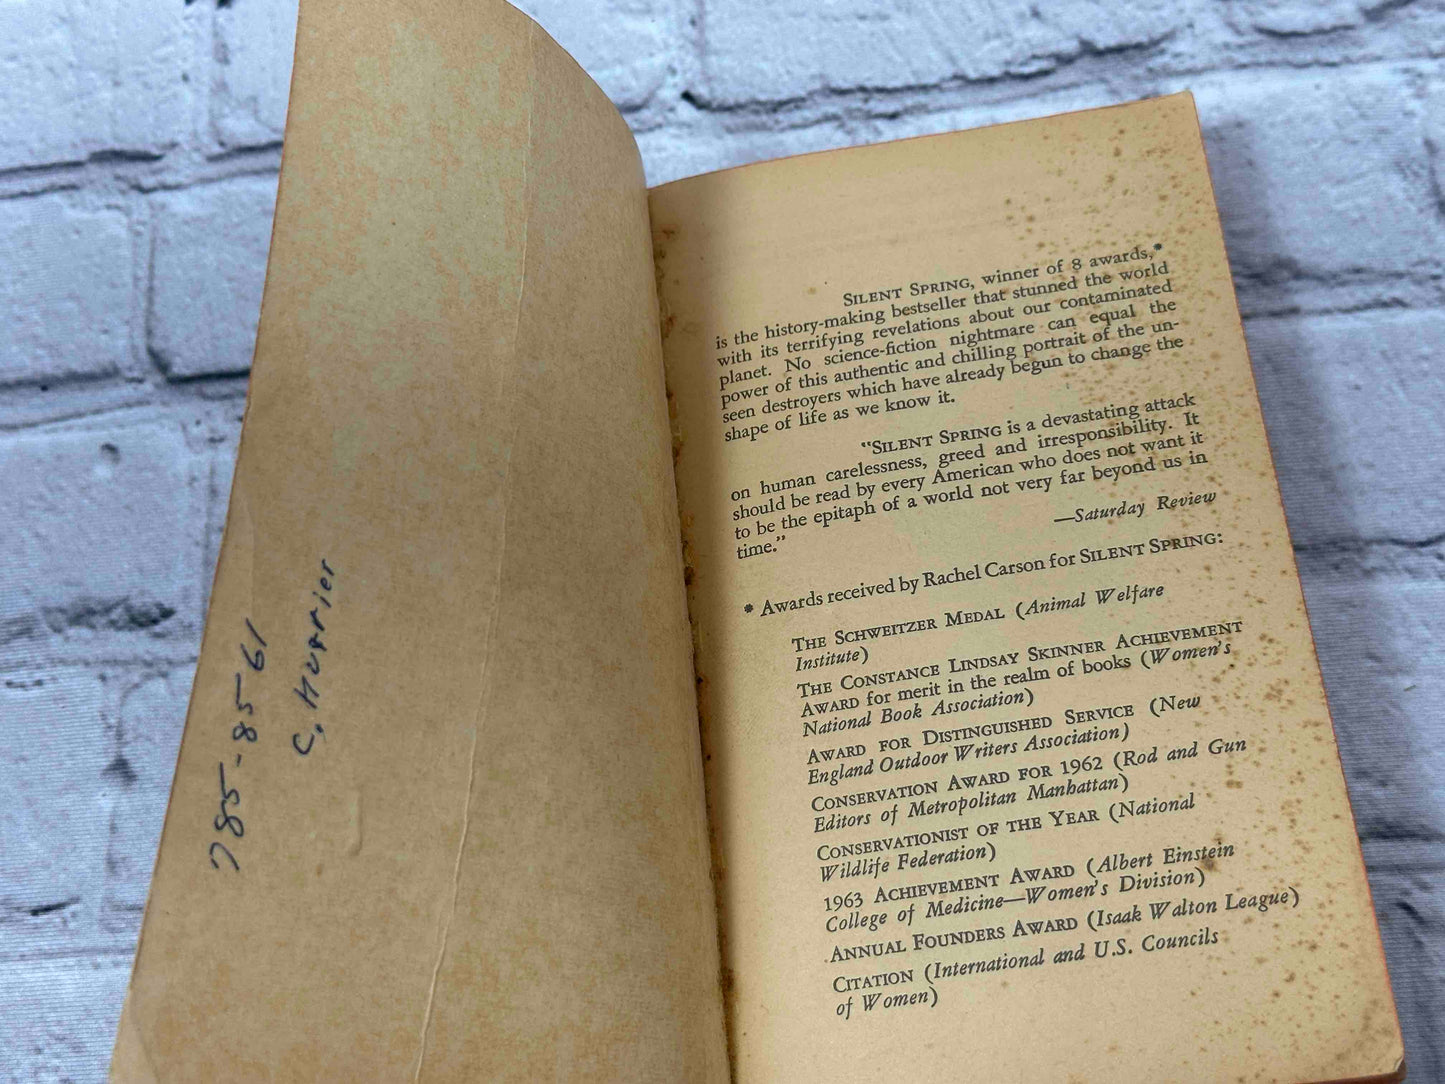 785-8561
SILENT SPRING, winner of 8 awards,*
is the history-making bestseller that stunned the world
with its terrifying revelations about our contaminated
planet. No science-fiction nightmare can equal the
power of this authentic and chilling portrait of the un-
seen destroyers which have already begun to change the
shape of life as we know it.
"SILENT SPRING is a devastating attack
on human carelessness, greed and irresponsibility. It
should be read by every American who does not want it
to be the epitaph of a world not very far beyond us in
time."
—Saturday Review
* Awards received by Rachel Carson for SILENT SPRING:
THE SCHWEITZER MEDAL (Animal Welfare
Institute)
THE CONSTANCE LINDSAY SKINNER ACHIEVEMENT
AWARD for merit in the realm of books (Women's
National Book Association)
AWARD FOR DISTINGUISHED SERVICE (New
England Outdoor Writers Association)
CONSERVATION AWARD FOR 1962 (Rod and Gun
Editors of Metropolitan Manhattan)
CONSERVATIONIST OF THE YEAR (National
Wildlife Federation)
1963 ACHIEVEMENT AWARD (Albert Einstein
College of Medicine—Women's Division)
ANNUAL FOUNDERS AWARD (Isaak Walton League)
CITATION (International and U.S. Councils
of Women)